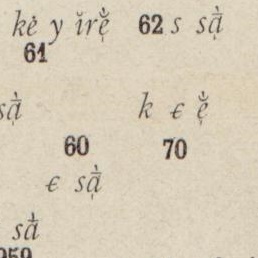 kė y ĭrẹ̆̀ 62 s sạ̈̀
61
sạ̈̀ k ɛ ẹ̆̀
60 70
ɛ sạ̈̀
sạ̈̀